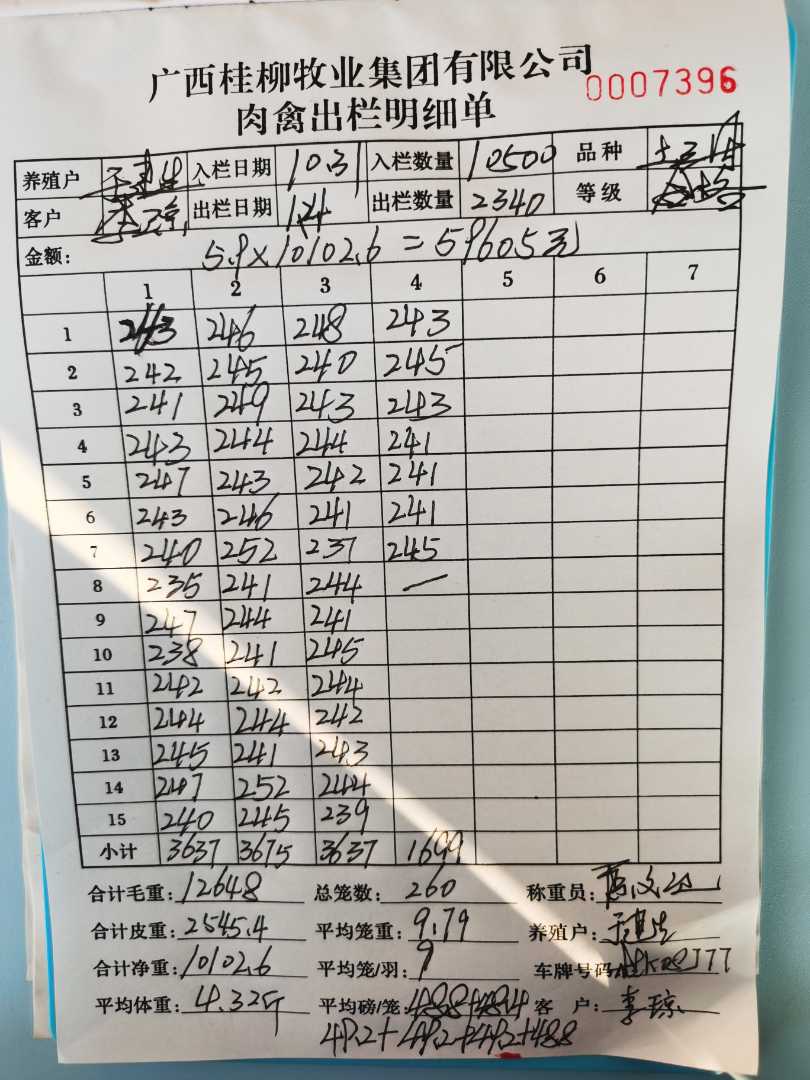 广西桂柳牧业集团有限公司
0007396
肉禽出栏明细单
养殖户 于建生 入栏日期 10.31 入栏数量 10500 品种
客户 李琼 出栏日期 1.4 出栏数量 2340 等级
金额: 5.9×10102.6=59605元
1 2 3 4 5 6 7
1 243 246 248 243
2 242 245 240 245
3 241 249 243 243
4 243 244 244 241
5 247 243 242 241
6 243 246 241 241
7 240 252 237 245
8 235 241 244 —
9 247 244 241
10 238 241 245
11 242 242 244
12 244 244 242
13 245 241 243
14 247 252 244
15 240 245 239
小计 3637 3675 3637 1699
合计毛重: 12648 总笼数: 260 称重员:
合计皮重: 2545.4 平均笼重: 9.79 养殖户: 于建生
合计净重: 10102.6 平均笼/羽: 9 车牌号码:
平均体重: 4.32斤 平均磅/笼: 488+489.4 客 户: 李琼
49.2+49.2+49.2+488